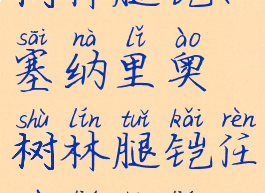 sāi nà lǐ ào
塞纳里奥
shù lín tuǐ kǎi rèn
树林腿铠任